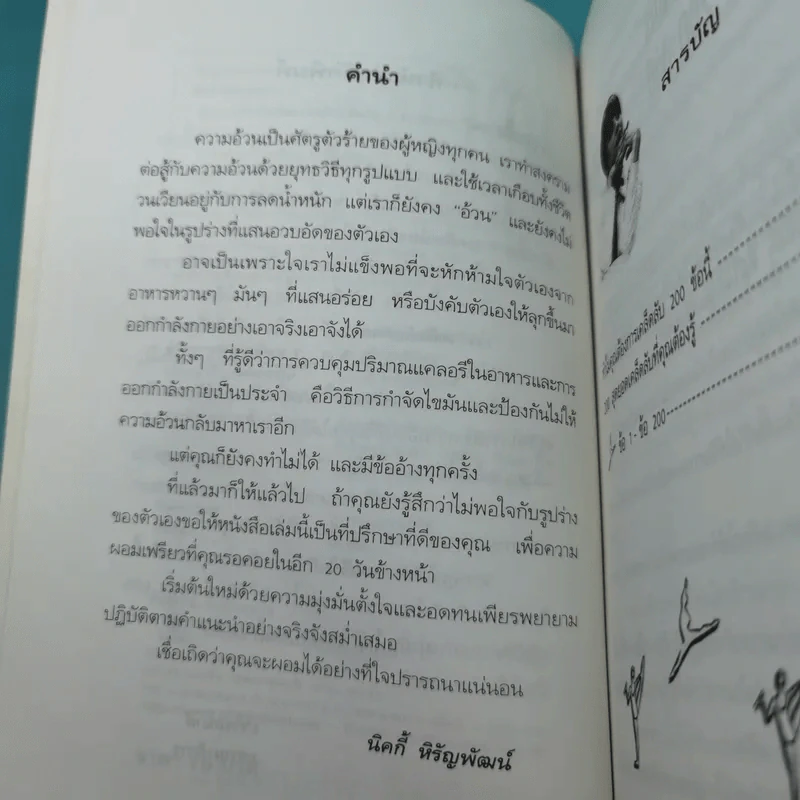 คำนำ
ความอ้วนเป็นศัตรูตัวร้ายของผู้หญิงทุกคน เราทำสงคราม
ต่อสู้กับความอ้วนด้วยยุทธวิธีทุกรูปแบบ และใช้เวลาเกือบทั้งชีวิต
วนเวียนอยู่กับการลดน้ำหนัก แต่เราก็ยังคง "อ้วน" และยังคงไม่
พอใจในรูปร่างที่แสนอวบอัดของตัวเอง
อาจเป็นเพราะใจเราไม่แข็งพอที่จะหักห้ามใจตัวเองจาก
อาหารหวานๆ มันๆ ที่แสนอร่อย หรือบังคับตัวเองให้ลุกขึ้นมา
ออกกำลังกายอย่างเอาจริงเอาจังได้
ทั้งๆ ที่รู้ดีว่าการควบคุมปริมาณแคลอรีในอาหารและการ
ออกกำลังกายเป็นประจำ คือวิธีการกำจัดไขมันและป้องกันไม่ให้
ความอ้วนกลับมาหาเราอีก
แต่คุณก็ยังคงทำไม่ได้ และมีข้ออ้างทุกครั้ง
ที่แล้วมาก็ให้แล้วไป ถ้าคุณยังรู้สึกว่าไม่พอใจกับรูปร่าง
ของตัวเองขอให้หนังสือเล่มนี้เป็นที่ปรึกษาที่ดีของคุณ เพื่อความ
ผอมเพรียวที่คุณรอคอยในอีก 20 วันข้างหน้า
เริ่มต้นใหม่ด้วยความมุ่งมั่นตั้งใจและอดทนเพียรพยายาม
ปฏิบัติตามคำแนะนำอย่างจริงจังสม่ำเสมอ
เชื่อเถิดว่าคุณจะผอมได้อย่างที่ใจปรารถนาแน่นอน
นิคกี้ หิรัญพัฒน์
สารบัญ
คุณต้องการเคล็ดลับ 200 ข้อนี้
สุดยอดเคล็ดลับที่คุณต้องรู้
ข้อ 1 - ข้อ 200